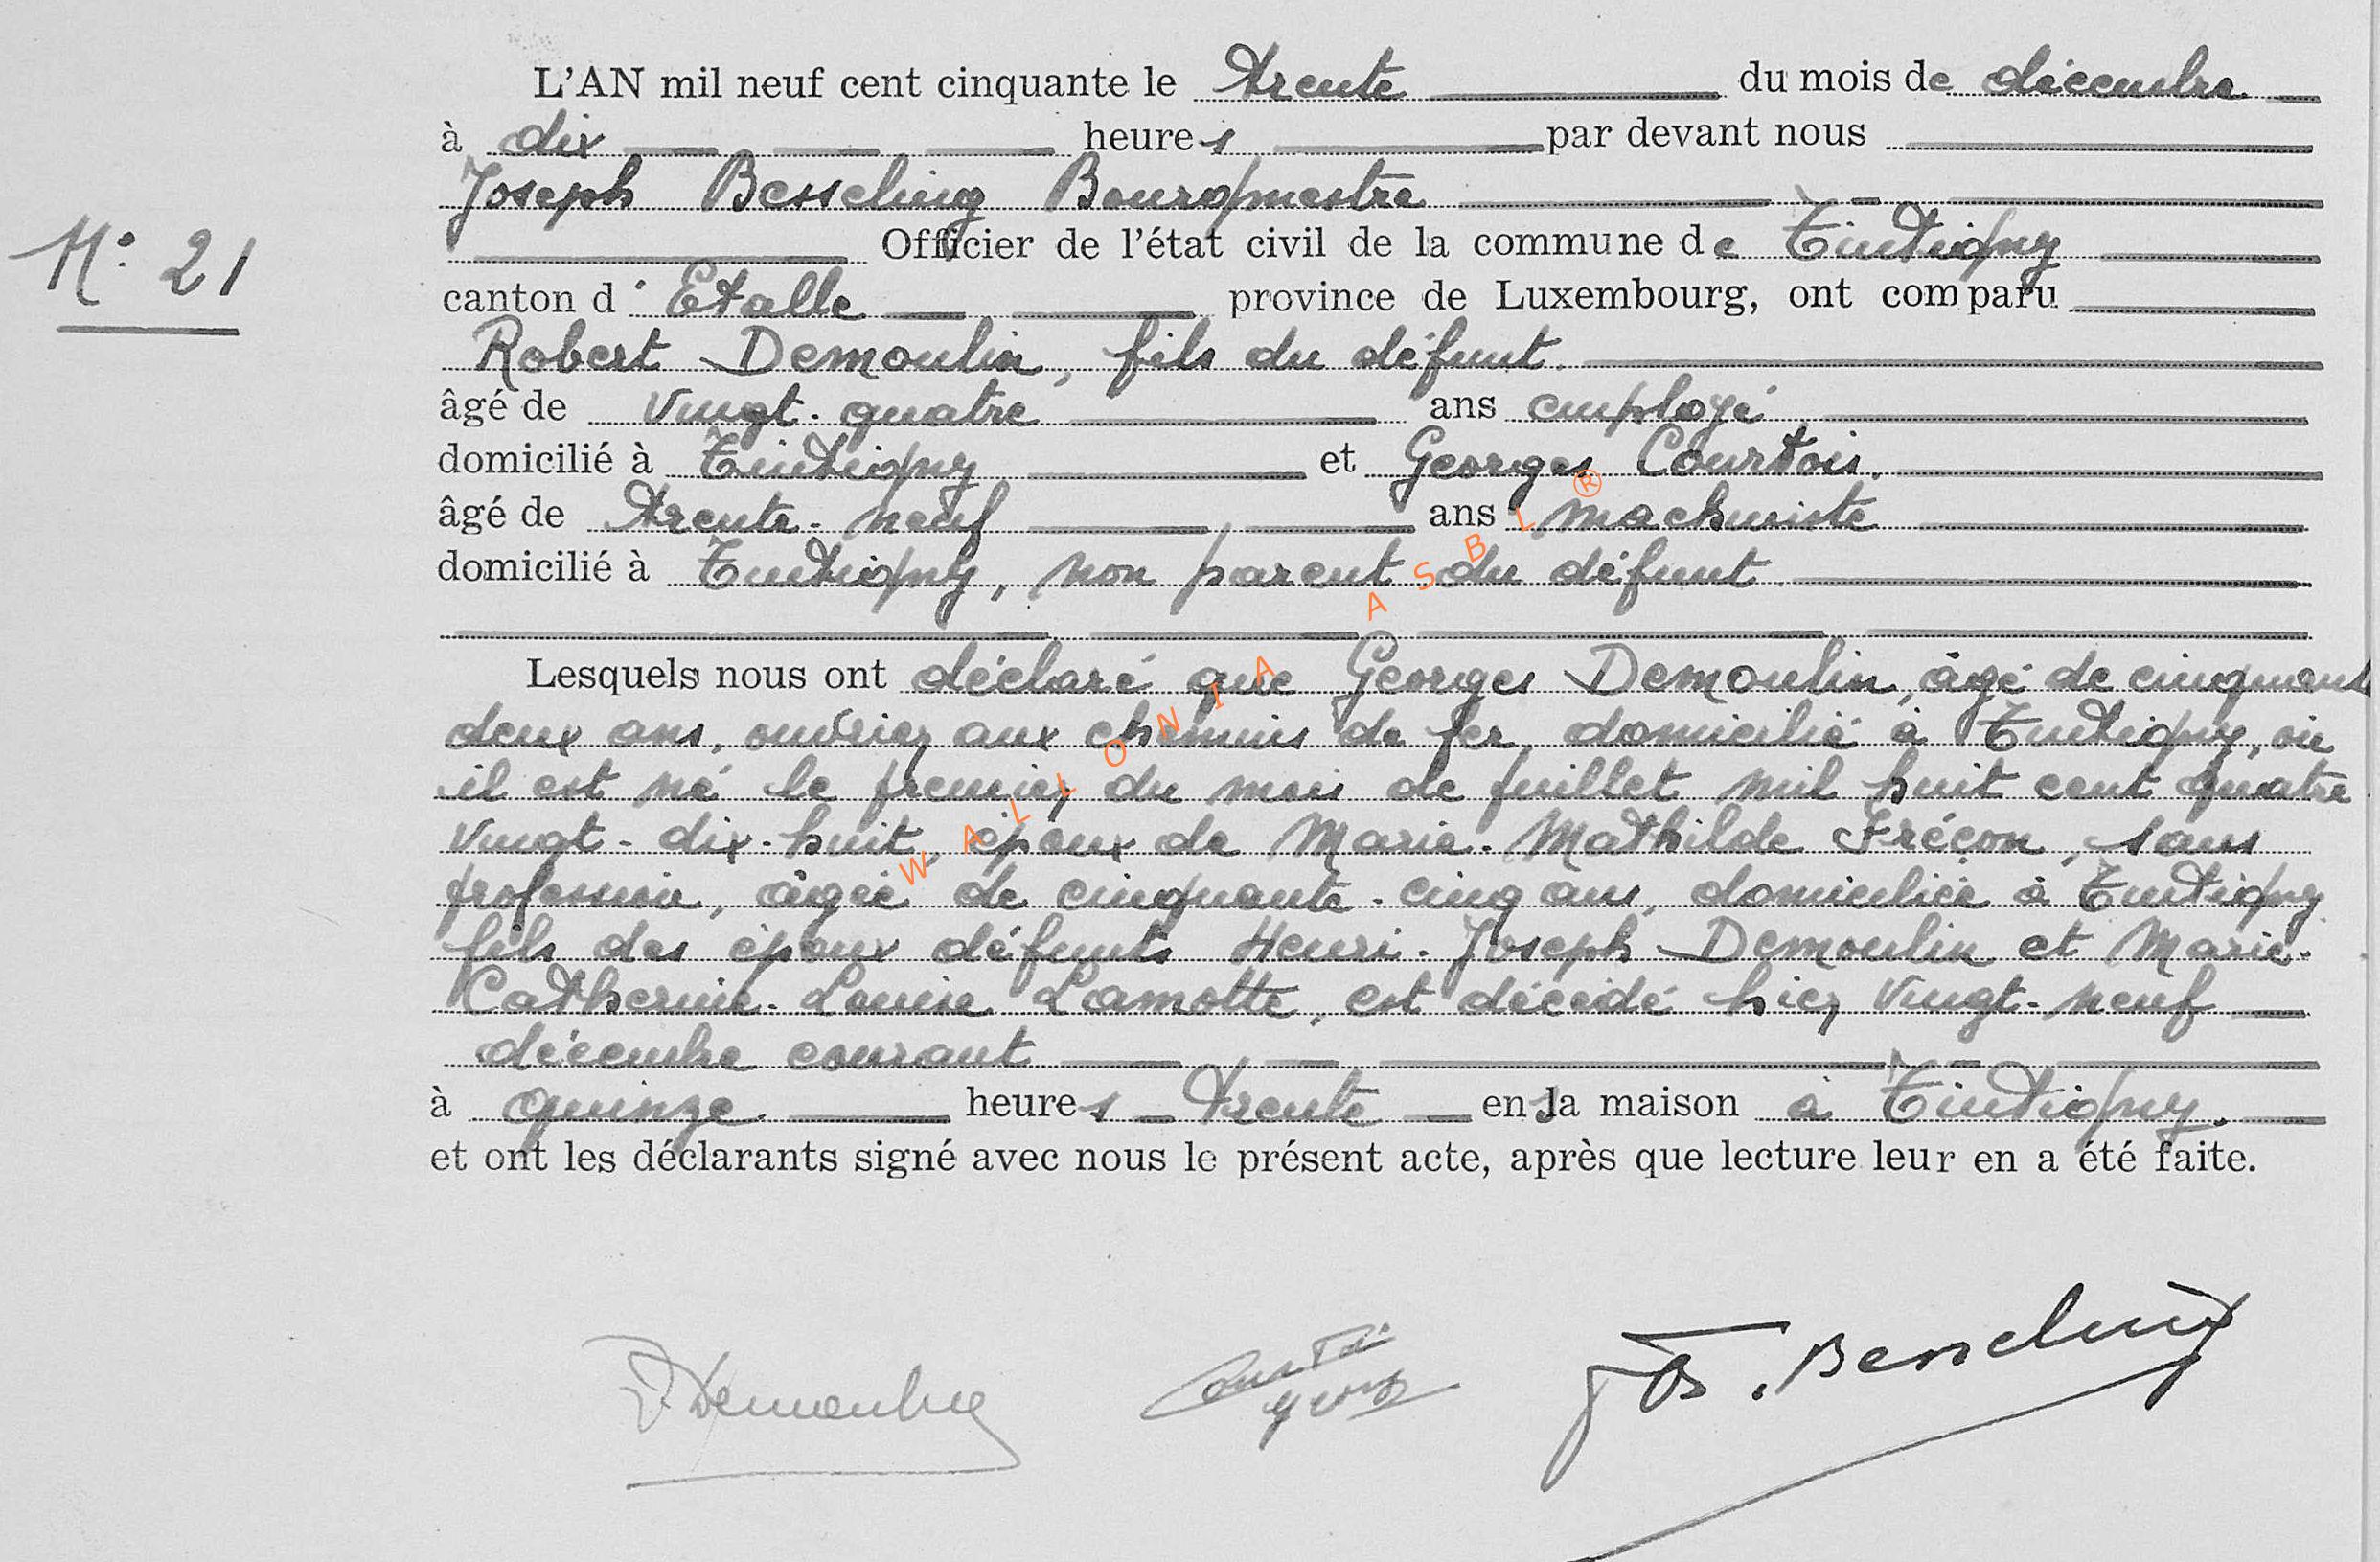 L'AN mil neuf cent cinquante le trente du mois de décembre
à dix heures par devant nous
Joseph Besseling Bourgmestre
N° 21
Officier de l'état civil de la commune de Tintigny
canton d'Etalle province de Luxembourg, ont comparu
Robert Demoulin, fils du défunt.
âgé de vingt-quatre ans employé
domicilié à Tintigny et Georges Courtois.
âgé de trente-neuf ans machiniste
domicilié à Tintigny, non parent du défunt.
Lesquels nous ont déclaré que Georges Demoulin, âgé de cinquante
deux ans, ouvrier aux chemins de fer, domicilié à Tintigny, où
il est né le premier du mois de juillet mil huit cent quatre
vingt-dix-huit, époux de Marie-Mathilde Fréçon, sans
profession, âgée de cinquante-cinq ans, domiciliée à Tintigny
fils des époux défunts Henri-Joseph Demoulin et Marie-
Catherine-Louise Lamotte, est décédé hier vingt-neuf
décembre courant
à quinze heures trente en sa maison à Tintigny.
et ont les déclarants signé avec nous le présent acte, après que lecture leur en a été faite.
R Demoulin
Courtois
Georg
Jos. Besseling
WALLONIA ASBL ®